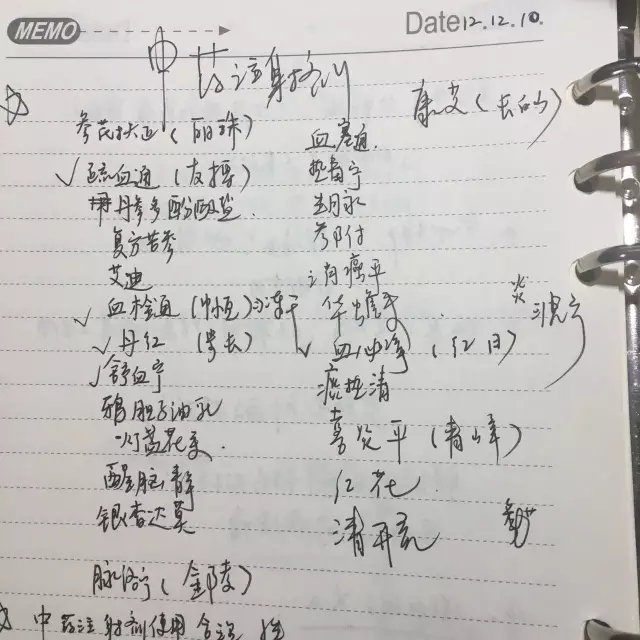 MEMO
Date 12.12.10.
中药注射剂
参芪扶正（丽珠）
康艾（长白山）
血塞通
疏血通（友搏）
热毒宁
丹参多酚酸盐
生脉
复方苦参
参附
艾迪
消癌平
血栓通（中恒）冻干
华蟾素
炎琥宁
丹红（步长）
血必净（红日）
舒血宁
痰热清
鸦胆子油乳
喜炎平（青峰）
灯盏花素
红花
醒脑静
清开灵
银杏达莫
脉络宁（金陵）
中药注射剂使用合理性